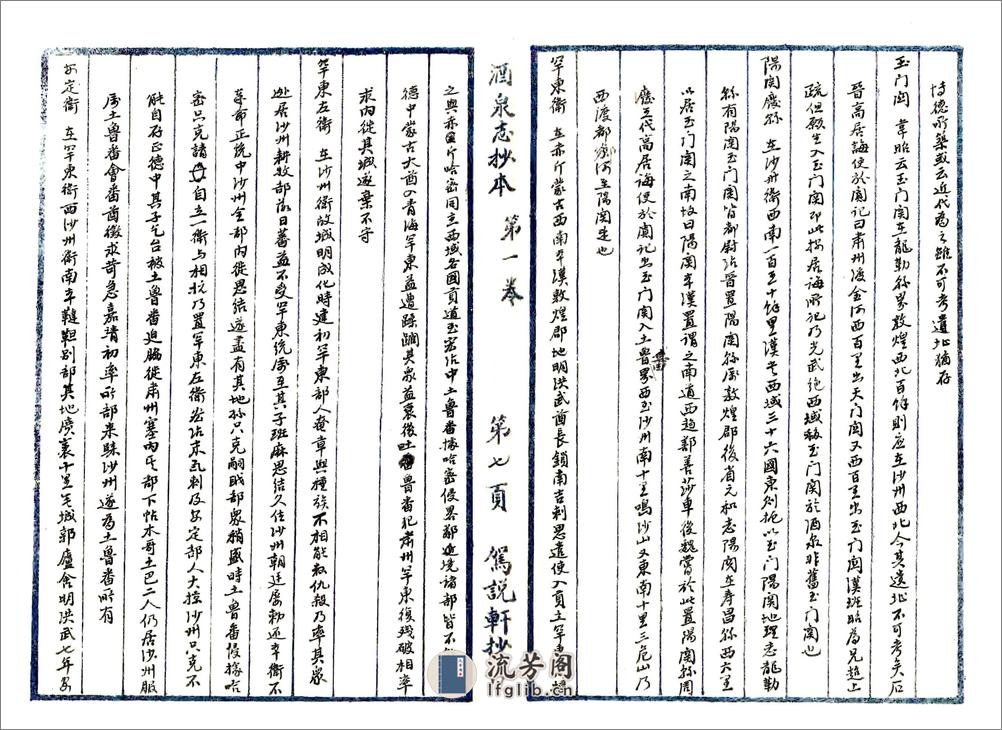 博德所築或云近代為之雖不可考遺址猶存
玉门関 韋昭云玉门関在龍勒縣界敦煌西北百餘則应在沙州西北今其遺址不可考矣石
晉高居誨使於闐記曰肅州渡金河西百里出天门関又西百里出玉门関漢班昭為兄超上
疏但願生入玉门関即此按居诲所犯乃光武绝西域移玉门関於酒泉非舊玉门関也
陽関廢縣 在沙州衛西南一百五十餘里漢書西域三十六國東则扼以玉门陽関地理志龍勒
縣有陽関玉门関皆都尉治晉置陽関縣属敦煌郡後省元和志陽関在寿昌縣西六里
以居玉门関之南故曰陽関本漢置谓之南道西趋鄯善莎車後魏嘗於此置陽関縣周
廢五代高居诲使於阗记出玉门関入土鲁番界西至沙州南十里鳴沙山又東南十里三危山乃
西渡都鄉河至陽関是也
罕東衛 在赤斤蒙古西南本漢敦煌郡地明洪武酋長鎖南吉剌思遣使入貢立罕東衛
酒泉志抄本 第一卷 第七頁 駕説軒抄
之與赤斤哈密同主西域各國貢道至宏治中土鲁番據哈密侵畧鄰边境諸部皆不
德中蒙古大酋入青海罕東益遭蹂躪其众益衰後吐鲁番犯肅州罕東復残破相率
求内徙其城遂棄不守
罕東左衛 在沙州衛故城明成化時建初罕東部人奄章與種族不相能数仇殺乃率其眾
逃居沙州耕牧部落日蕃益不受罕東统属至其子班麻思结久住沙州朝廷屡勅还本衛不
奉命正统中沙州全部内徙思结遂盡有其地孫只克嗣职部眾稍盛時土鲁番侵據哈
密只克請自立一衛与相抗乃置罕東左衛宏治末瓦剌及安定部人大掠沙州只克不
能自存正德中其子乞台被土鲁番迫脇徙肅州塞内其部下帖木哥土巴二人仍居沙州服
属土鲁番會番酋徵求苛急嘉靖初率所部来歸沙州遂为土鲁番所有
安定衛 在罕東衛西沙州衛南本韃靼别部其地廣袤千里无城郭廬舍明洪武七年
流芳阁
lfglib.cn